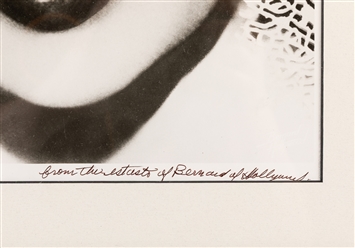 from the estate of Bernard of Hollywood.